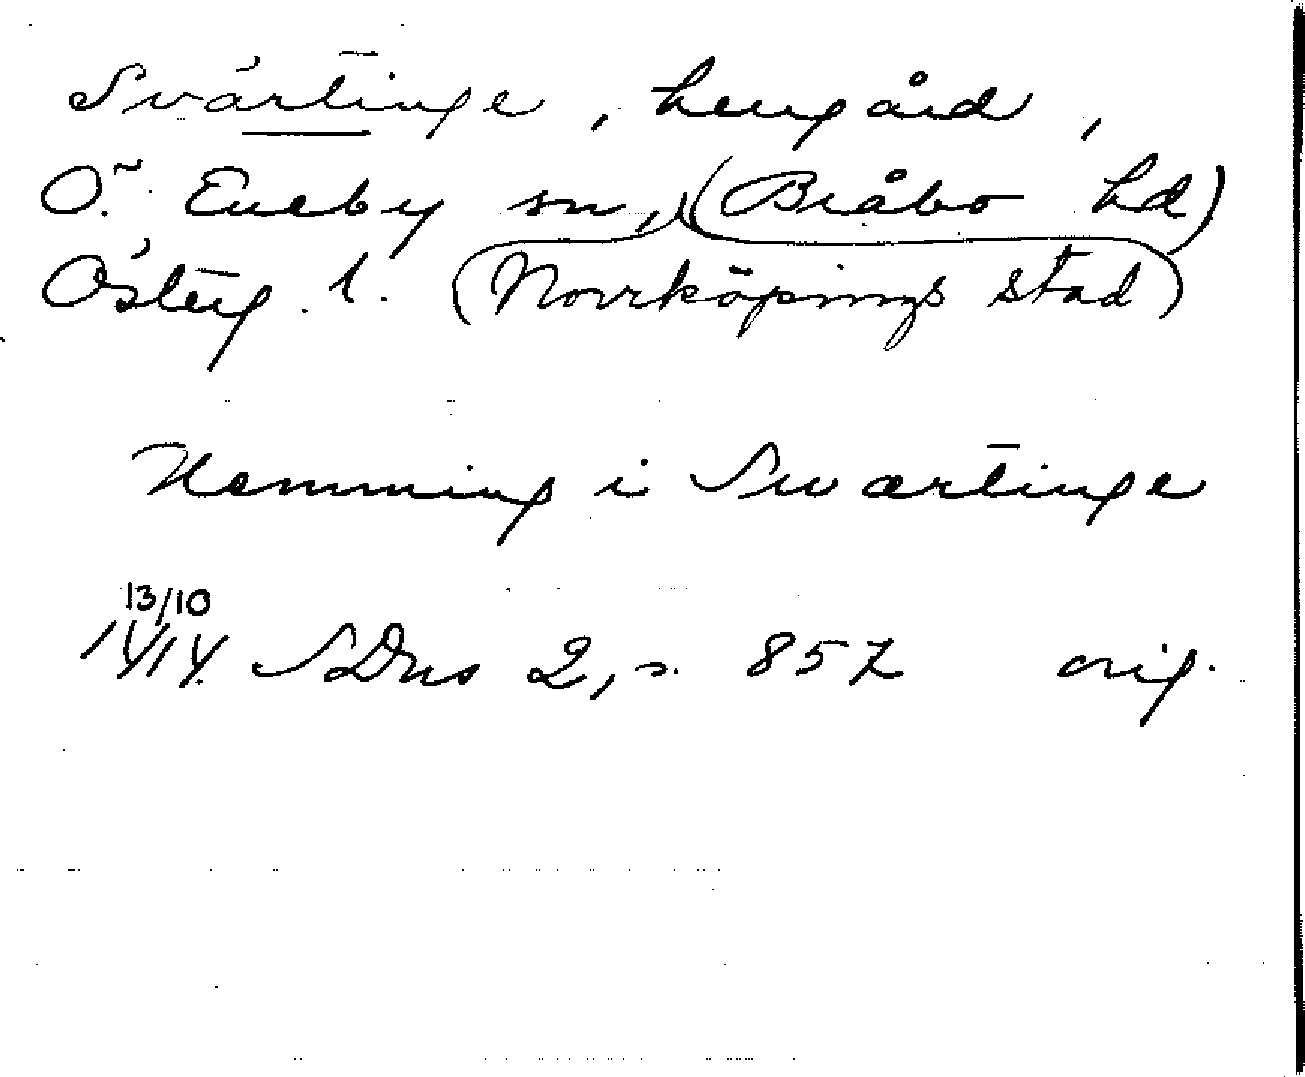 Svärtinge, herrgård,
Ö. Eneby sn, (Bråbo hd)
Österg. l. (Norrköpings stad)
Hemming i Swærtinge
13/10
1414 SDns 2, s. 857 orig.